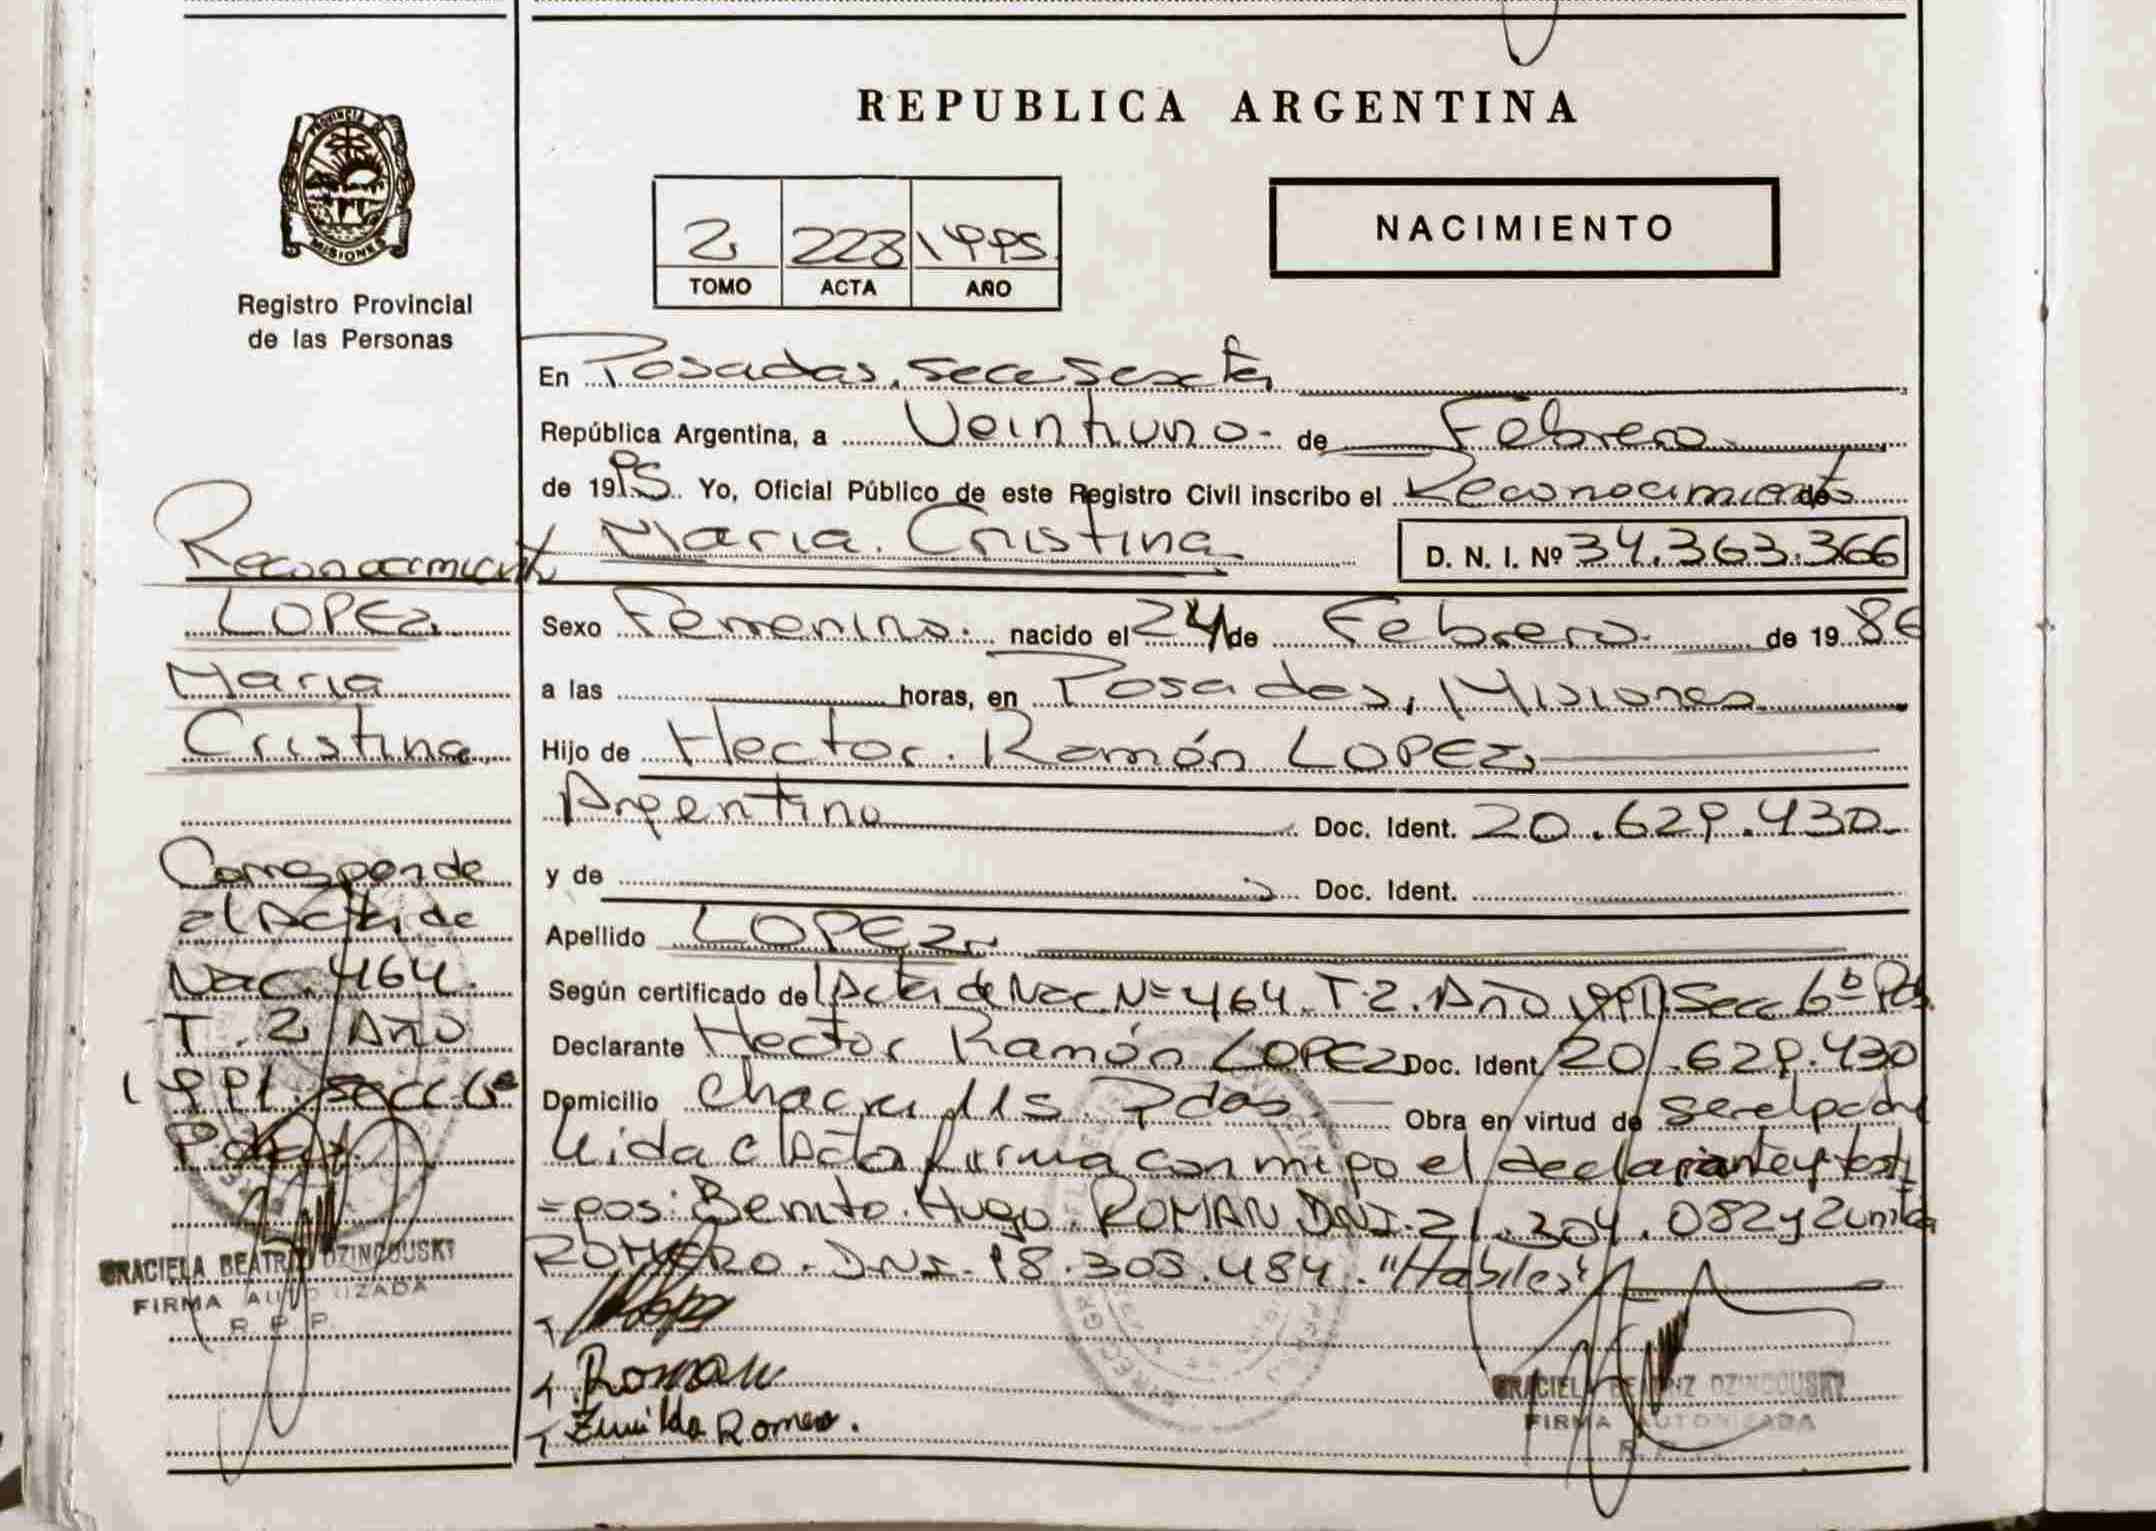 PROVINCIA DE
MISIONES
Registro Provincial
de las Personas
Reconocimiento
LOPEZ
Maria
Cristina
Corresponde
al Acta de
Nac. 464.
T. 2 Año
1991. Secc. 6ª
Pdas.
GRACIELA BEATRIZ DZINCOUSKI
FIRMA AUTORIZADA
R P P
REPUBLICA ARGENTINA
2 228 1995
TOMO ACTA AÑO
NACIMIENTO
En Posadas, secc Sexta
República Argentina, a Veintiuno - de Febrero
de 1995. Yo, Oficial Público de este Registro Civil inscribo el Reconocimiento de
Maria Cristina D. N. I. Nº 34.363.366
Sexo Femenino. nacido el 24 de Febrero de 19 86
a las horas, en Posadas, Misiones
Hijo de Hector Ramón LOPEZ,
Argentino Doc. Ident. 20.629.430
y de Doc. Ident.
Apellido LOPEZ
Según certificado del Acta de Nac. Nº 464. T. 2. Año 1991. Secc 6ª Pdas.
Declarante Hector Ramón LOPEZ Doc. Ident. 20.629.430
Domicilio Chacra 115. Pdas Obra en virtud de ser el padre
Leida el Acta firma conmigo el declarante y testi
=gos: Benito Hugo ROMAN DNI. 21.304.082 y Zunilda
ROMERO. DNI. 18.303.484. "Habiles"
Roman
Zunilda Romero.
GRACIELA BEATRIZ DZINCOUSKI
FIRMA AUTORIZADA